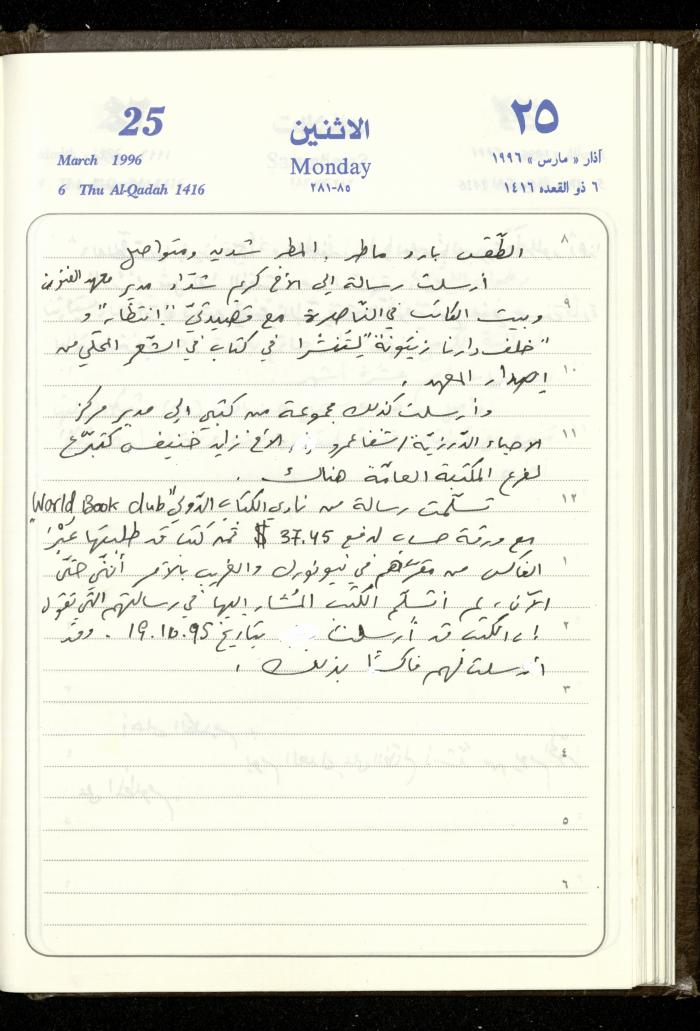 25
٢٥
الاثنين
March 1996
Monday
آذار « مارس » ١٩٩٦
6 Thu Al-Qadah 1416
٢٨١-٨٥
٦ ذو القعده ١٤١٦
٨
الطّقس بارد ماطر . المطر شديد ومتواصل
أرسلت رسالة الى الأخ كريم شدّاد مدير معهد الفنون
٩
وبيت الكاتب في النّاصرة مع قصيدتيّ "إنتظار" و
"خلف دارنا زيتونة" ليُنشرا في كتاب في الشّعر المحلّي من
١٠
إصدار المعهد .
وأرسلت كذلك مجموعة من كتبي الى مدير مركز
١١
الاحياء الدّرزيّة / شفاعمرو الأخ زايد خنيفس كتبرّع
لفرع المكتبة العامّة هناك .
١٢
تسلّمت رسالة من نادي الكتاب الدّولي "World Book club"
مع ورقة حساب لدفع 37.45 $ ثمن كتب قد طلبتها عَبْرَ
١
الفاكس من مقرّهم في نيويورك والغريب بالأمر أنّني حتّى
الآن ، لم أتسلّم الكتب المُشار إليها في رسالتهم التي تقول
٢
إن الكتب قد أُرسلت بتاريخ 19.10.95 . وقد
أرسلت لهم فاكسًا بذلك .
٣
٤
٥
٦